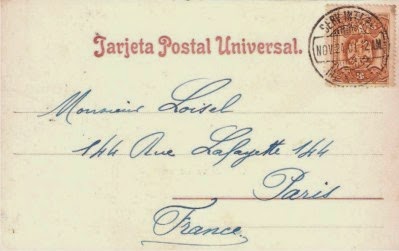 Tarjeta Postal Universal.
SERV. INTER
NOV
Monsieur Loisel
144 Rue Lafayette 144
Paris
France